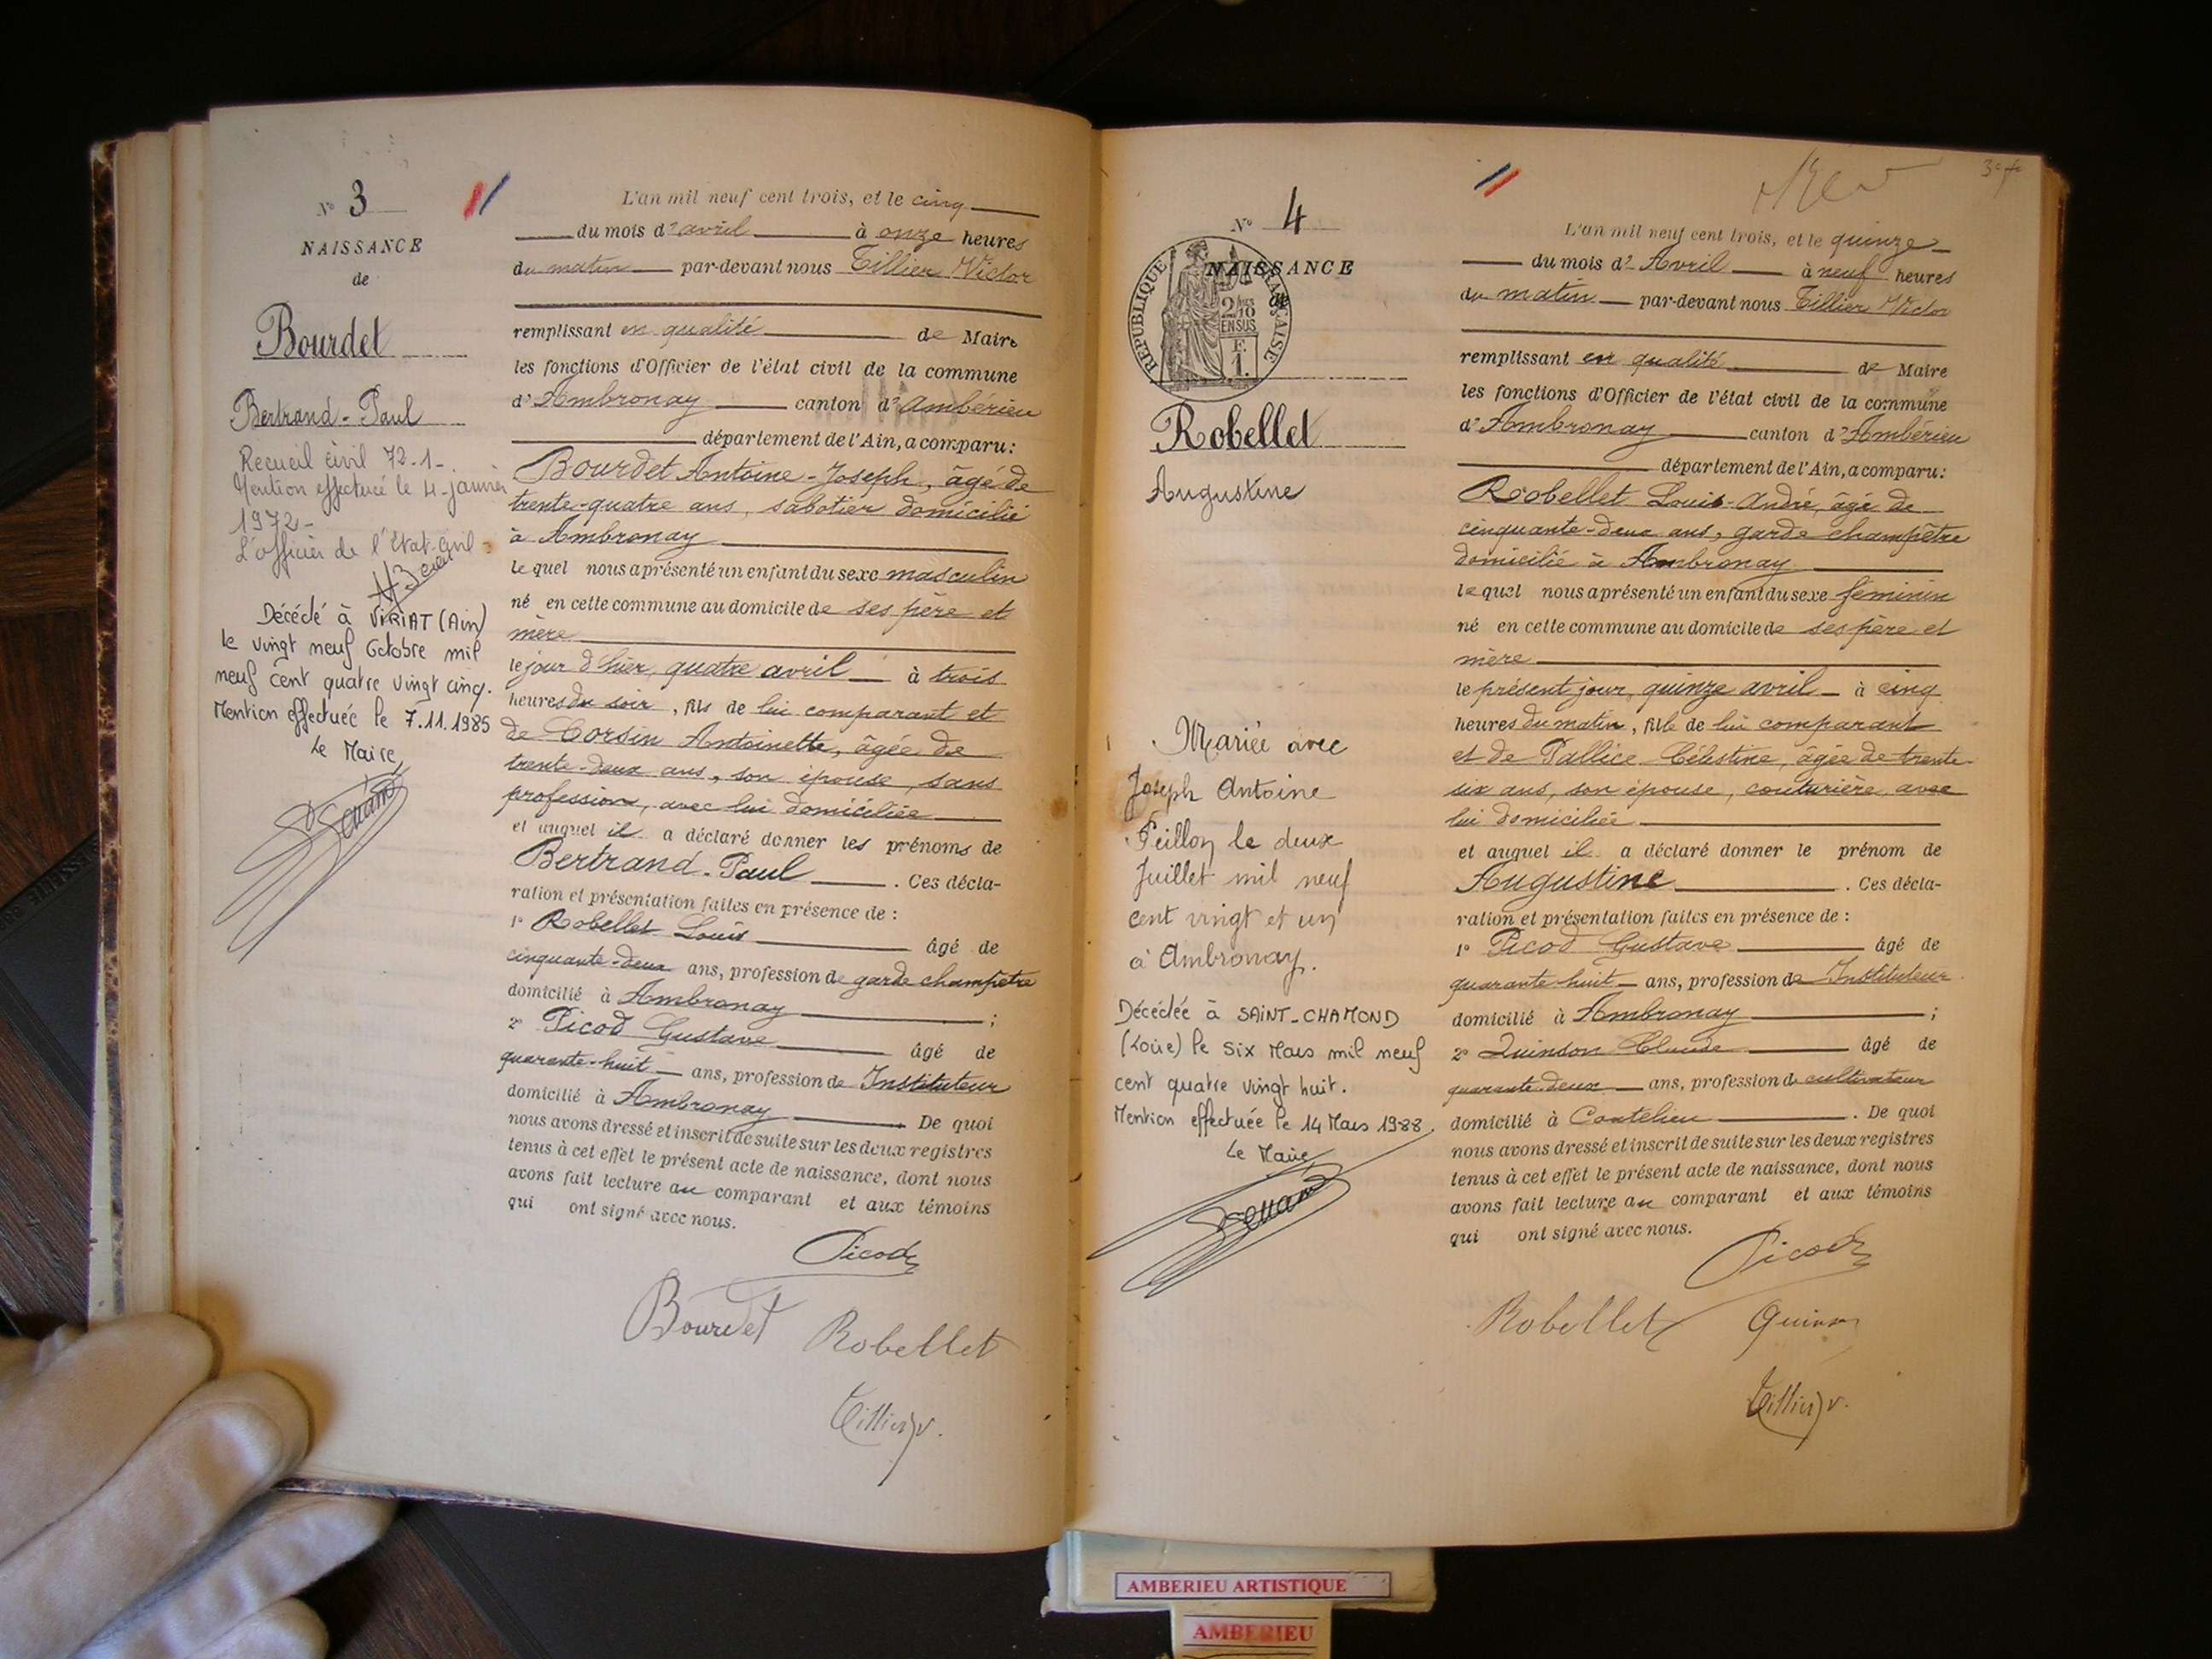 N° 3
NAISSANCE
de
Bourdet
Bertrand-Paul
Recueil civil 72.1-.
Mention effectuée le 4 janvier
1972-
L'officier de l'Etat-civil
Décédé à VIRIAT (Ain)
le vingt neuf Octobre mil
neuf cent quatre vingt cinq.
Mention effectuée le 7.11.1985
Le Maire,
L'an mil neuf cent trois, et le cinq
du mois d'avril à onze heures
du matin par-devant nous Tillier Victor
remplissant en qualité de Maire
les fonctions d'Officier de l'état civil de la commune
d'Ambronay canton d'Ambérieu
département de l'Ain, a comparu:
Bourdet Antoine-Joseph, âgé de
trente-quatre ans, sabotier domicilié
à Ambronay
lequel nous a présenté un enfant du sexe masculin
né en cette commune au domicile de ses père et
mère
le jour d'hier, quatre avril à trois
heures du soir, fils de lui comparant et
de Corsin Antoinette, âgée de
trente-deux ans, son épouse, sans
profession, avec lui domiciliée
et auquel il a déclaré donner les prénoms de
Bertrand-Paul. Ces décla-
ration et présentation faites en présence de :
1° Robellet Louis âgé de
cinquante-deux ans, profession de garde champêtre
domicilié à Ambronay ;
2° Picod Gustave âgé de
quarante-huit ans, profession de Instituteur
domicilié à Ambronay. De quoi
nous avons dressé et inscrit de suite sur les deux registres
tenus à cet effet le présent acte de naissance, dont nous
avons fait lecture au comparant et aux témoins
qui ont signé avec nous.
Picod
Bourdet Robellet
Tillier V.
N° 4
NAISSANCE
de
REPUBLIQUE FRANÇAISE
2/10
EN SUS
F.
1.
Robellet
Augustine
Mariée avec
Joseph Antoine
Peillon le deux
Juillet mil neuf
cent vingt et un
à Ambronay.
Décédée à SAINT-CHAMOND
(Loire) le six Mars mil neuf
cent quatre vingt huit.
Mention effectuée le 14 Mars 1988.
Le Maire
L'an mil neuf cent trois, et le quinze
du mois d'Avril à neuf heures
du matin par-devant nous Tillier Victor
remplissant en qualité de Maire
les fonctions d'Officier de l'état civil de la commune
d'Ambronay canton d'Ambérieu
département de l'Ain, a comparu:
Robellet Louis-André, âgé de
cinquante-deux ans, garde champêtre
domicilié à Ambronay
lequel nous a présenté un enfant du sexe féminin
né en cette commune au domicile de ses père et
mère
le présent jour, quinze avril à cinq
heures du matin, fille de lui comparant
et de Pallice Célestine, âgée de trente-
six ans, son épouse, couturière avec
lui domiciliée
et auquel il a déclaré donner le prénom de
Augustine. Ces décla-
ration et présentation faites en présence de :
1° Picod Gustave âgé de
quarante-huit ans, profession de Instituteur
domicilié à Ambronay ;
2° Quinson Claude âgé de
quarante-deux ans, profession de cultivateur
domicilié à Coutelieu. De quoi
nous avons dressé et inscrit de suite sur les deux registres
tenus à cet effet le présent acte de naissance, dont nous
avons fait lecture au comparant et aux témoins
qui ont signé avec nous.
Picod
Robellet Quinson
Tillier V.
AMBERIEU ARTISTIQUE
AMBERIEU